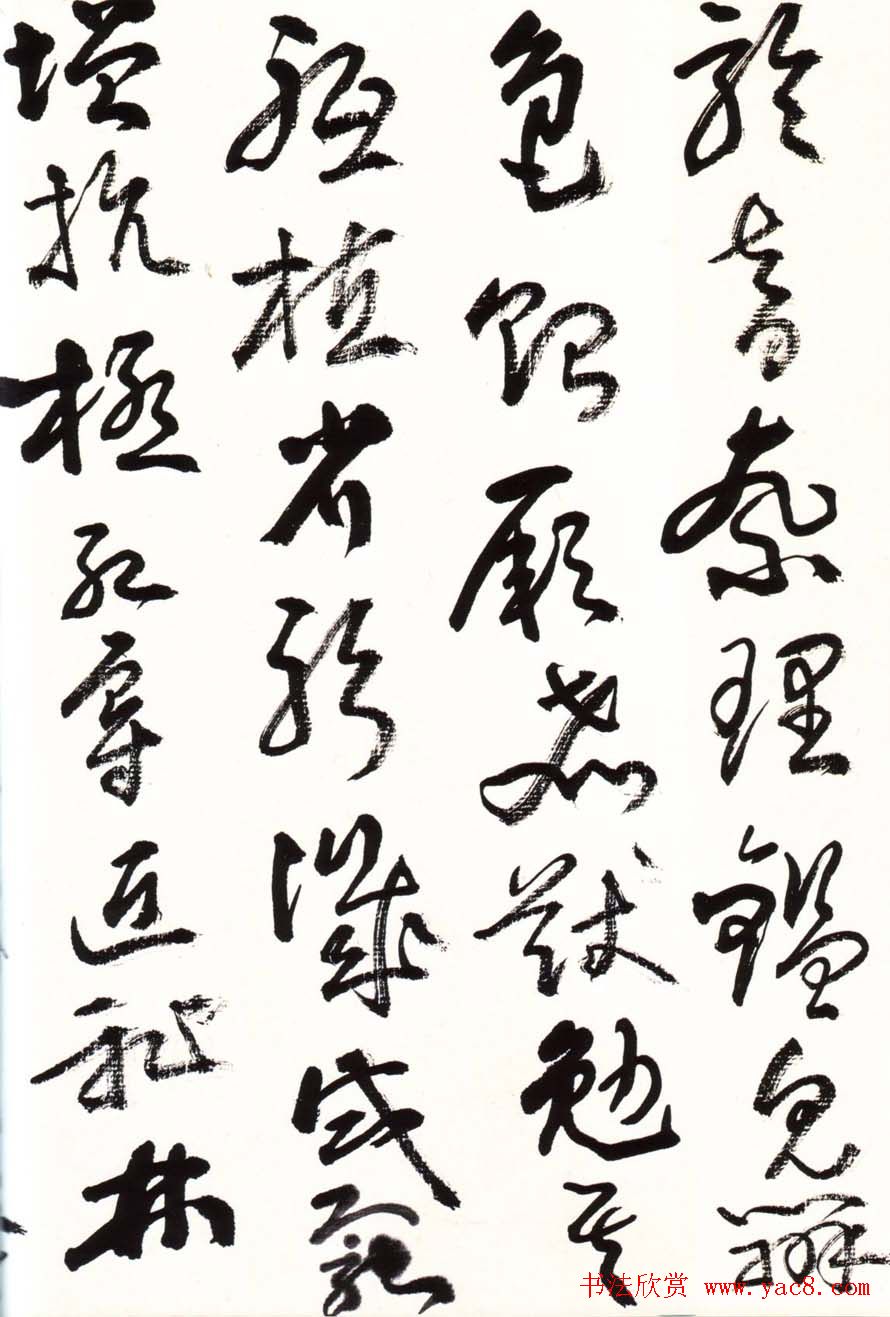 聆音察理鑑皃辨
色貽厥嘉猷勉其
祗植省躬譏誡寵
增抗極殆辱近恥林
书法欣赏 www.yac8.com